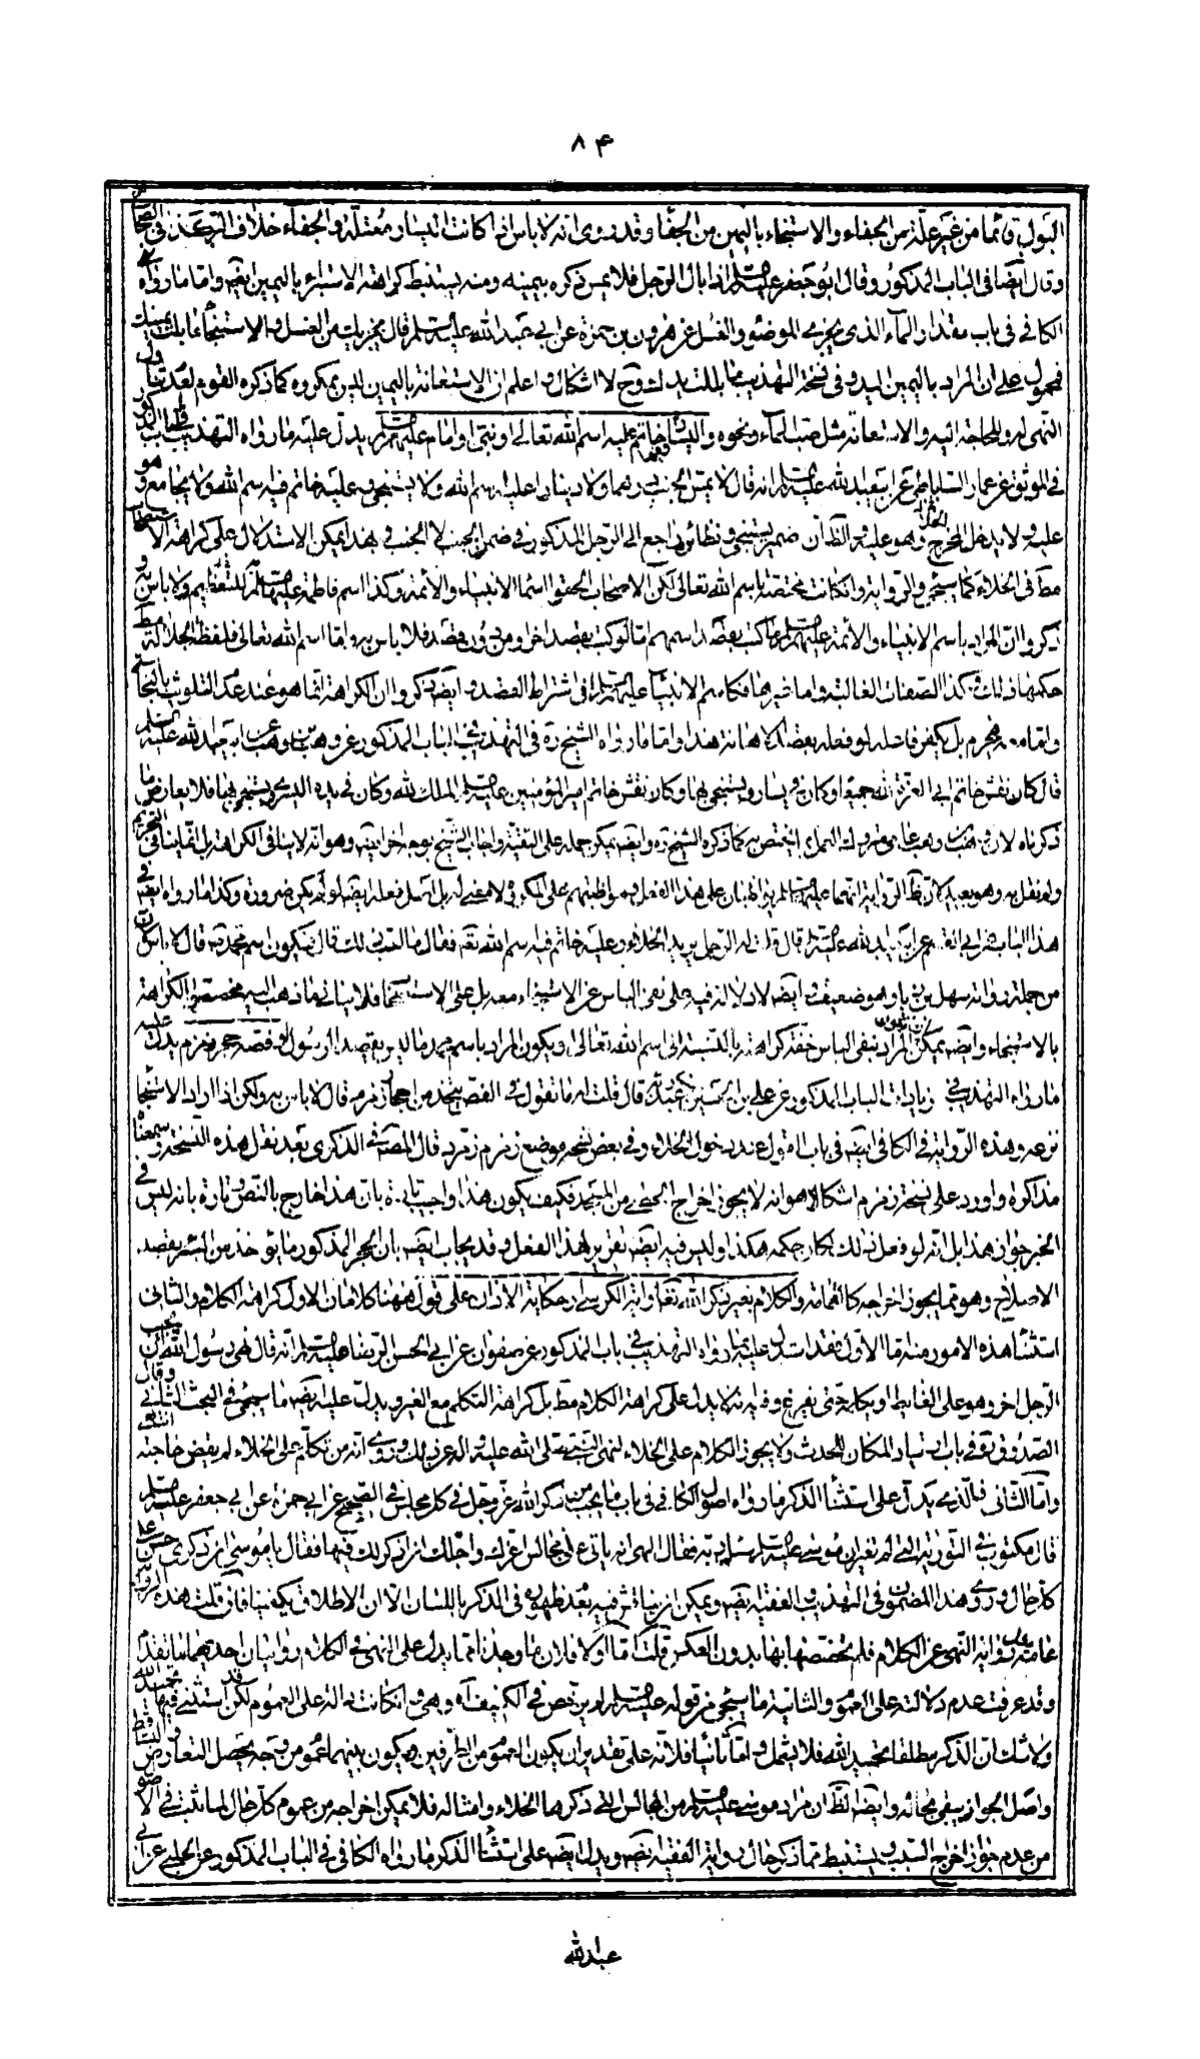 ٨۴
البول قائما من غير علة من الجفاء والاستنجاء باليمين من الجفاء وقد روى انه لا باس اذا كانت اليسار معتلة والجفاء خلاف البر كذا في الصحاح
وقال ايضا في الباب المذكور وقال ابو جعفر عليه السلم اذا بال الرجل فلا يمس ذكره بيمينه ومنه يستنبط كراهة الاستبراء باليمين ايضه واما ما رواه
الكافي في باب مقدار المآء الذي يجزي للوضوء والغسل عن هرون بن حمزة عن ابي عبد الله عليه السلم قال يجزيك من الغسل والاستنجاء ما بلت يمينك
فمحمول على ان المراد باليمين اليد وفي نسخة التهذيب ما بللت يدك وح لا اشكال واعلم ان الاستعانة باليمين ليس بمكروه كما ذكره القوم لعدم تناول
النهي له وللحاجة اليه والاستعانة مثل صب المآء ونحوه واليسار وفيها خاتم عليه اسم الله تعالى او نبي او امام عليهم السلم يدل عليه ما رواه التهذيب في الباب المذكور
في الموثق عن عمار الساباطي عن ابي عبد الله عليه السلم انه قال لا يمس الجنب درهما ولا دينارا عليه اسم الله ولا يستنجي وعليه خاتم فيه اسم الله ولا يجامع وهو
عليه ولا يدخل المخرج وهو عليه والظ ان ضمير يستنجي ونظائره راجع الى الرجل المذكور في ضمن الجنب لا الجنب وبهذا يمكن الاستدلال على كراهة الاستصحاب
مط في الخلاء كما سيجئ والرواية وان كانت مختصة باسم الله تعالى لكن الاصحاب الحقوا اسماء الانبياء والائمة وكذا اسم فاطمة عليها السلم للتعظيم ولا باس به و
ذكروا ان المراد باسم الانبياء والائمة عليهم السلم ما كتب بقصد اسمهم اما لو كتب بقصد اخر ومن دون قصد فلا باس به واما اسم الله تعالى فلفظ الجلالة مط
حكمها ذلك وكذا الصفات الغالبة واما غيرهما فكاسم الانبياء عليهم السلم في اشتراط القصد وايضه ذكروا ان الكراهة انما هو عند عدم التلوث بالنجاسة
واما معه فمحرم بل يكفر فاعله لو فعله بقصد الاهانة هذا واما ما رواه الشيخ ره في التهذيب في الباب المذكور عن وهب بن وهب عن ابي عبد الله عليه السلم
قال كان نقش خاتم ابي العزة لله جميعا وكان في يساره يستنجي بها وكان نقش خاتم امير المؤمنين عليه السلم الملك لله وكان في يده اليسرى يستنجي بها فلا يعارض ما
ذكرناه لان وهب بن وهب عامي متروك العمل بما يختص به كما ذكره الشيخ ره وايضه يمكن حمله على التقية واجاب الشيخ بوجه اخر ايضه وهو انه لا ينافي الكراهة بل انما ينافي التحريم
ولم نقل به وهو بعيد لان ظ الرواية انهما عليهما السلم يواظبان على هذا الفعل ومواظبتهم على المكروه لا معنى له بل اصل فعله ايضه لو لم يكن ضرورة وكذا ما رواه ايضه في
هذا الباب عن ابي القسم عن ابي عبد الله عليه السلم قال قلت له الرجل يريد الخلاء وعليه خاتم فيه اسم الله تعه فقال ما احب ذلك قال فيكون اسم محمد ص قال لا باس لان
من جملة رواته سهل بن زياد وهو ضعيف وايضه لا دلالة فيه على نفي الباس عن الاستنجاء معه بل على الاستصحاب فلا ينافي ما ذهب اليه مخصصوا الكراهة
بالاستنجاء وايضه يمكن ان يكون المراد بنفي الباس خفة كراهته بالنسبة الى اسم الله تعالى او يكون المراد باسم محمد ما لم يقصد به الرسول ص او فصه حجر زمزم يدل عليه
ما رواه التهذيب في زيادات الباب المذكور عن علي بن الحسين بن عبد ربه قال قلت له ما تقول في الفص يتخذ من احجار زمزم قال لا باس به ولكن اذا اراد الاستنجاء
نزعه وهذه الرواية في الكافي ايضه في باب القول عند دخول الخلاء وفي بعض نسخه موضع زمزم زمرد قال المصه في الذكرى بعد نقل هذه النسخة وسمعناه
مذاكرة واورد على نسخة زمزم اشكال هو انه لا يجوز اخراج الحصى من المسجد فكيف يكون هذا واجيب تارة بان هذا خارج بالنص وتارة بانه ليس في
الخبر جواز هذا بل انه لو فعل ذلك لكان حكمه هكذا وليس فيه ايضه تقرير لهذا الفعل وقد يجاب ايضه بان الحجر المذكور ما يؤخذ من البئر بقصد
الاصلاح وهو مما يجوز اخراجه كالقمامة والكلام بغير ذكر الله تعالى او اية الكرسي او حكاية الاذان على قول ههنا كلامان الاول كراهة الكلام والثاني
استثناء هذه الامور منه اما الاول فقد استدل عليه بما رواه التهذيب في باب المذكور عن صفوان عن ابي الحسن الرضا عليه السلم انه قال نهى رسول الله ص ان يجيب
الرجل اخر وهو على الغائط او يكلمه حتى يفرغ وفيه انه لا يدل على كراهة الكلام مط بل كراهة التكلم مع الغير ويدل عليه ايضه ما سيجئ في البحث الثاني وقال
الصدوق ره في باب ارتياد المكان للحدث ولا يجوز الكلام على الخلاء لنهي النبي صلى الله عليه واله عن ذلك وروى انه من تكلم على الخلاء لم يقض حاجته انتهى
واما الثاني فالذي يدل على استثناء الذكر ما رواه اصول الكافي في باب ما يجب من ذكر الله عز وجل في كل مجلس في الصحيح عن ابي حمزة عن ابي جعفر عليه السلم
قال مكتوب في التورية التي لم تغير ان موسى عليه السلم سال ربه فقال الهي انه ياتي علي مجالس اعزك واجلك ان اذكرك فيها فقال يا موسى ان ذكري حسن على
كل حال وروى هذا المضمون في التهذيب والفقيه ايضه ويمكن ان يناقش فيه بعد ظهوره في الذكر باللسان الا ان الاطلاق يكفينا فان قلت هذه الرواية
عامة ورواية النهي عن الكلام فلم يخصصها بها بدون العكس قلت اما اولا فلان ما وجدنا مما يدل على النهي في الكلام روايتان احديهما ما تقدم
وقد عرفت عدم دلالته على العموم والثانية ما سيجئ من قوله عليه السلم لم يرخص في الكنيف اه وهي وان كانت دالة على العموم لكن قد استثنى فيها تحميد الله
ولا شك ان الذكر مطلقا تحميد الله فلا يشمله واما ثانيا فلانه على تقدير ان يكون العموم من الطرفين ويكون بينهما عموم من وجه يحصل التعارض والتساقط
واصل الجواز يبقى بحاله وايضه الظ ان مراد موسى عليه السلم من المجالس التي ذكرها الخلاء وامثاله فلا يمكن اخراجه من عموم كل حال لما ثبت في الاصول
من عدم جواز اخراج السبب ويستنبط مما ذكر حال رواية الفقيه ايضه ويدل ايضه على استثناء الذكر ما رواه الكافي في الباب المذكور عن الحلبي عن ابي
عبد الله